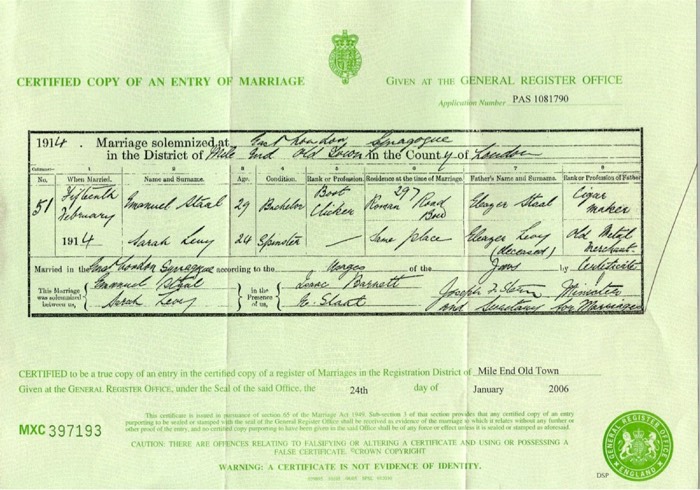 CERTIFIED COPY OF AN ENTRY OF MARRIAGE
GIVEN AT THE GENERAL REGISTER OFFICE
Application Number PAS 1081790
1914. Marriage solemnized at East London Synagogue
in the District of Mile End Old Town in the County of London
Columns:- 1 2 3 4 5 6 7 8
No. When Married. Name and Surname. Age. Condition. Rank or Profession. Residence at the time of Marriage. Father's Name and Surname. Rank or Profession of Father
51 Fifteenth February 1914
Emanuel Staal 29 Bachelor Boot Clicker 297 Roman Road Bow Eleazer Staal Cigar maker
Sarah Levy 24 Spinster — Same place Eleazer Levy (deceased) Old Metal Merchant
Married in the East London Synagogue according to the Usages of the Jews by Certificate
This Marriage was solemnized between us,
Emanuel Staal
Sarah Levy
in the Presence of us,
Isaac Barnett
Joseph F. Stern Minister
and Secretary for Marriages
CERTIFIED to be a true copy of an entry in the certified copy of a register of Marriages in the Registration District of Mile End Old Town
Given at the GENERAL REGISTER OFFICE, under the Seal of the said Office, the 24th day of January 2006
MXC 397193
This certificate is issued in pursuance of section 65 of the Marriage Act 1949. Sub-section 3 of that section provides that any certified copy of an entry
purporting to be sealed or stamped with the seal of the General Register Office shall be received as evidence of the marriage to which it relates without any further or
other proof of the entry, and no certified copy purporting to have been given in the said Office shall be of any force or effect unless it is sealed or stamped as aforesaid.
CAUTION: THERE ARE OFFENCES RELATING TO FALSIFYING OR ALTERING A CERTIFICATE AND USING OR POSSESSING A
FALSE CERTIFICATE. ©CROWN COPYRIGHT
WARNING: A CERTIFICATE IS NOT EVIDENCE OF IDENTITY.
GENERAL REGISTER OFFICE
ENGLAND
DSP